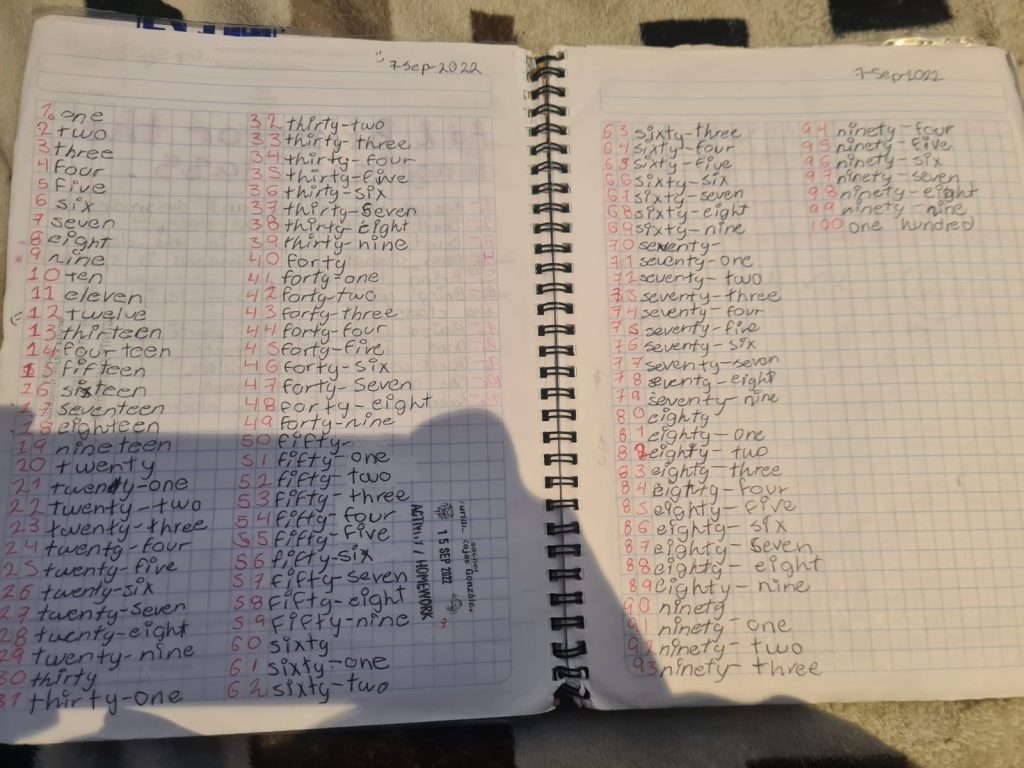 7-Sep-2022
1. one
2 two
3 three
4 four
5 five
6 six
7 seven
8 eight
9 nine
10 ten
11 eleven
12 twelve
13 thirteen
14 fourteen
15 fifteen
16 sixteen
17 seventeen
18 eighteen
19 nineteen
20 twenty
21 twenty-one
22 twenty-two
23 twenty-three
24 twenty-four
25 twenty-five
26 twenty-six
27 twenty-seven
28 twenty-eight
29 twenty-nine
30 thirty
31 thirty-one
32 thirty-two
33 thirty-three
34 thirty-four
35 thirty-five
36 thirty-six
37 thirty-seven
38 thirty-eight
39 thirty-nine
40 forty
41 forty-one
42 forty-two
43 forty-three
44 forty-four
45 forty-five
46 forty-six
47 forty-seven
48 forty-eight
49 forty-nine
50 fifty-
51 fifty-one
52 fifty-two
53 fifty-three
54 fifty-four
55 fifty-five
56 fifty-six
57 fifty-seven
58 fifty-eight
59 fifty-nine
60 sixty
61 sixty-one
62 sixty-two
15 SEP 2022
/ HOMEWORK
7-Sep2022
63 sixty-three
64 sixty-four
65 sixty-five
66 sixty-six
67 sixty-seven
68 sixty-eight
69 sixty-nine
70 seventy-
71 seventy-one
72 seventy-two
73 seventy-three
74 seventy-four
75 seventy-five
76 seventy-six
77 seventy-seven
78 seventy-eight
79 seventy-nine
80 eighty
81 eighty-one
82 eighty-two
83 eighty-three
84 eighty-four
85 eighty-five
86 eighty-six
87 eighty-seven
88 eighty-eight
89 eighty-nine
90 ninety
91 ninety-one
92 ninety-two
93 ninety three
94 ninety-four
95 ninety-five
96 ninety-six
97 ninety-seven
98 ninety-eight
99 ninety-nine
100 one hundred